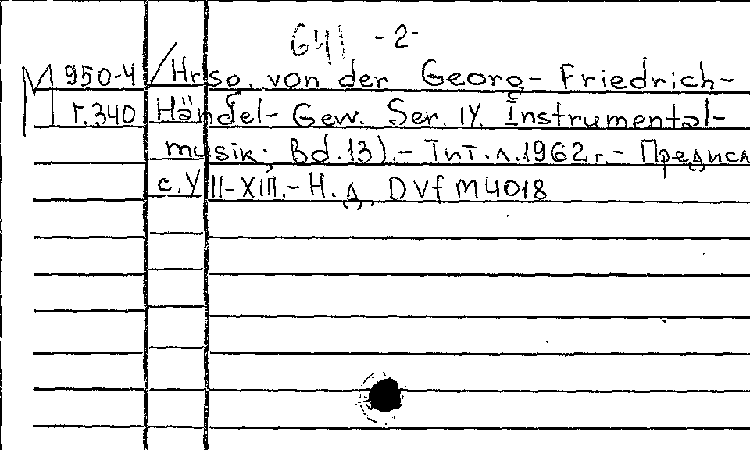 641 -2-
М 950-4 /Hrsg. von der Georg-Friedrich-
г.340 Händel-Gew. Ser. IV. Instrumental-
musik; Bd.13).- Тит.л.1962г.- Предисл
с.VII-XIII.- Н.д. DVfM4018